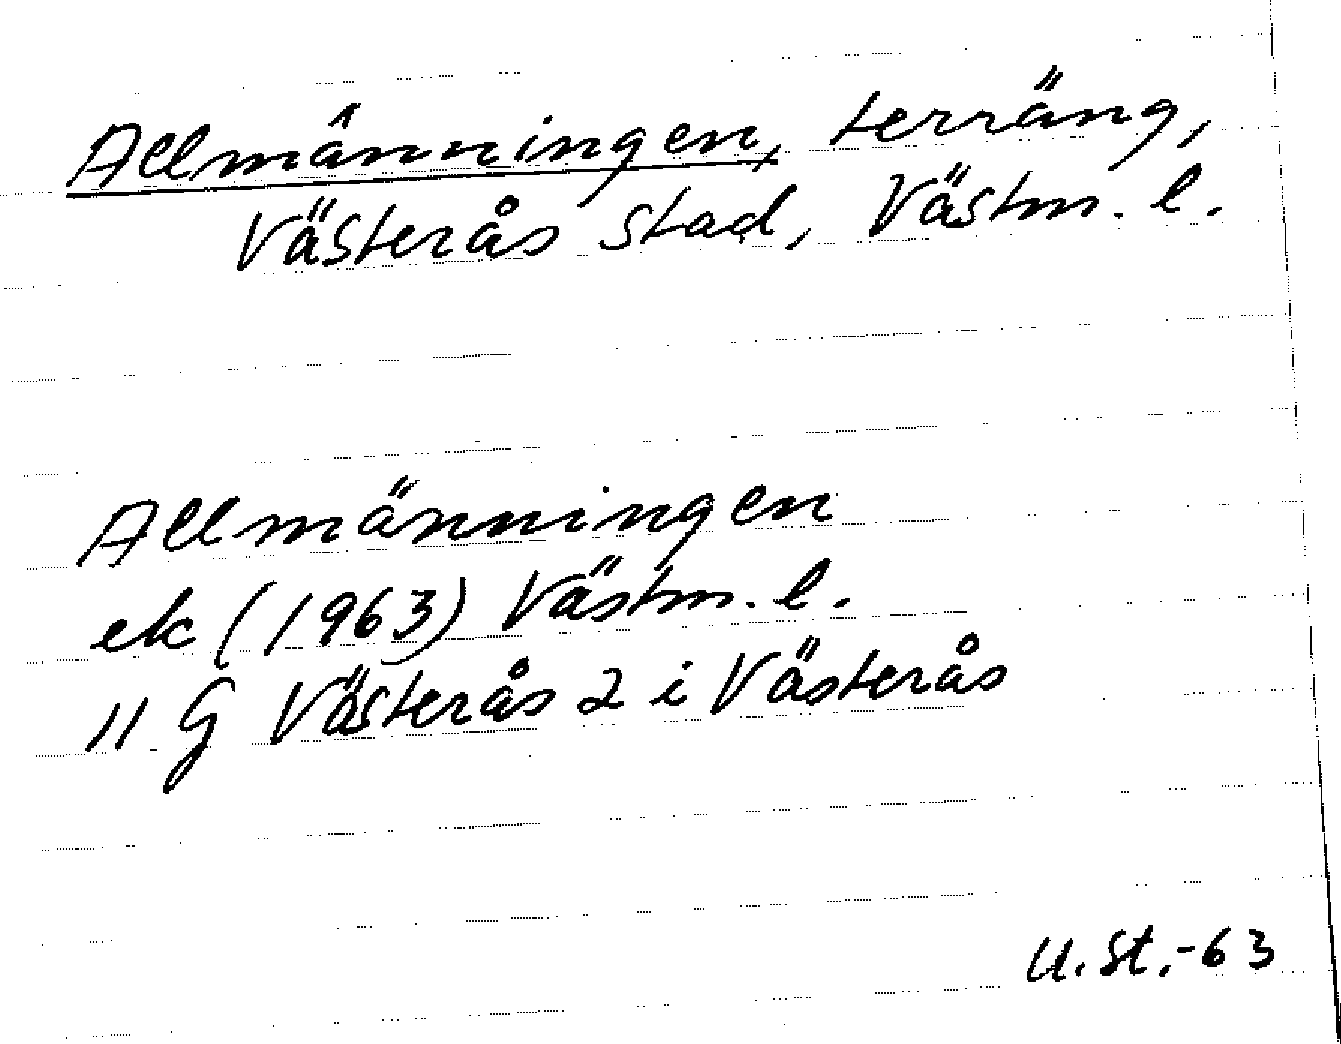 Allmänningen, terräng,
Västerås stad, Västm. l.
Allmänningen
ek (1963) Västm. l.
11 G Västerås 2 i Västerås
U. St. -63